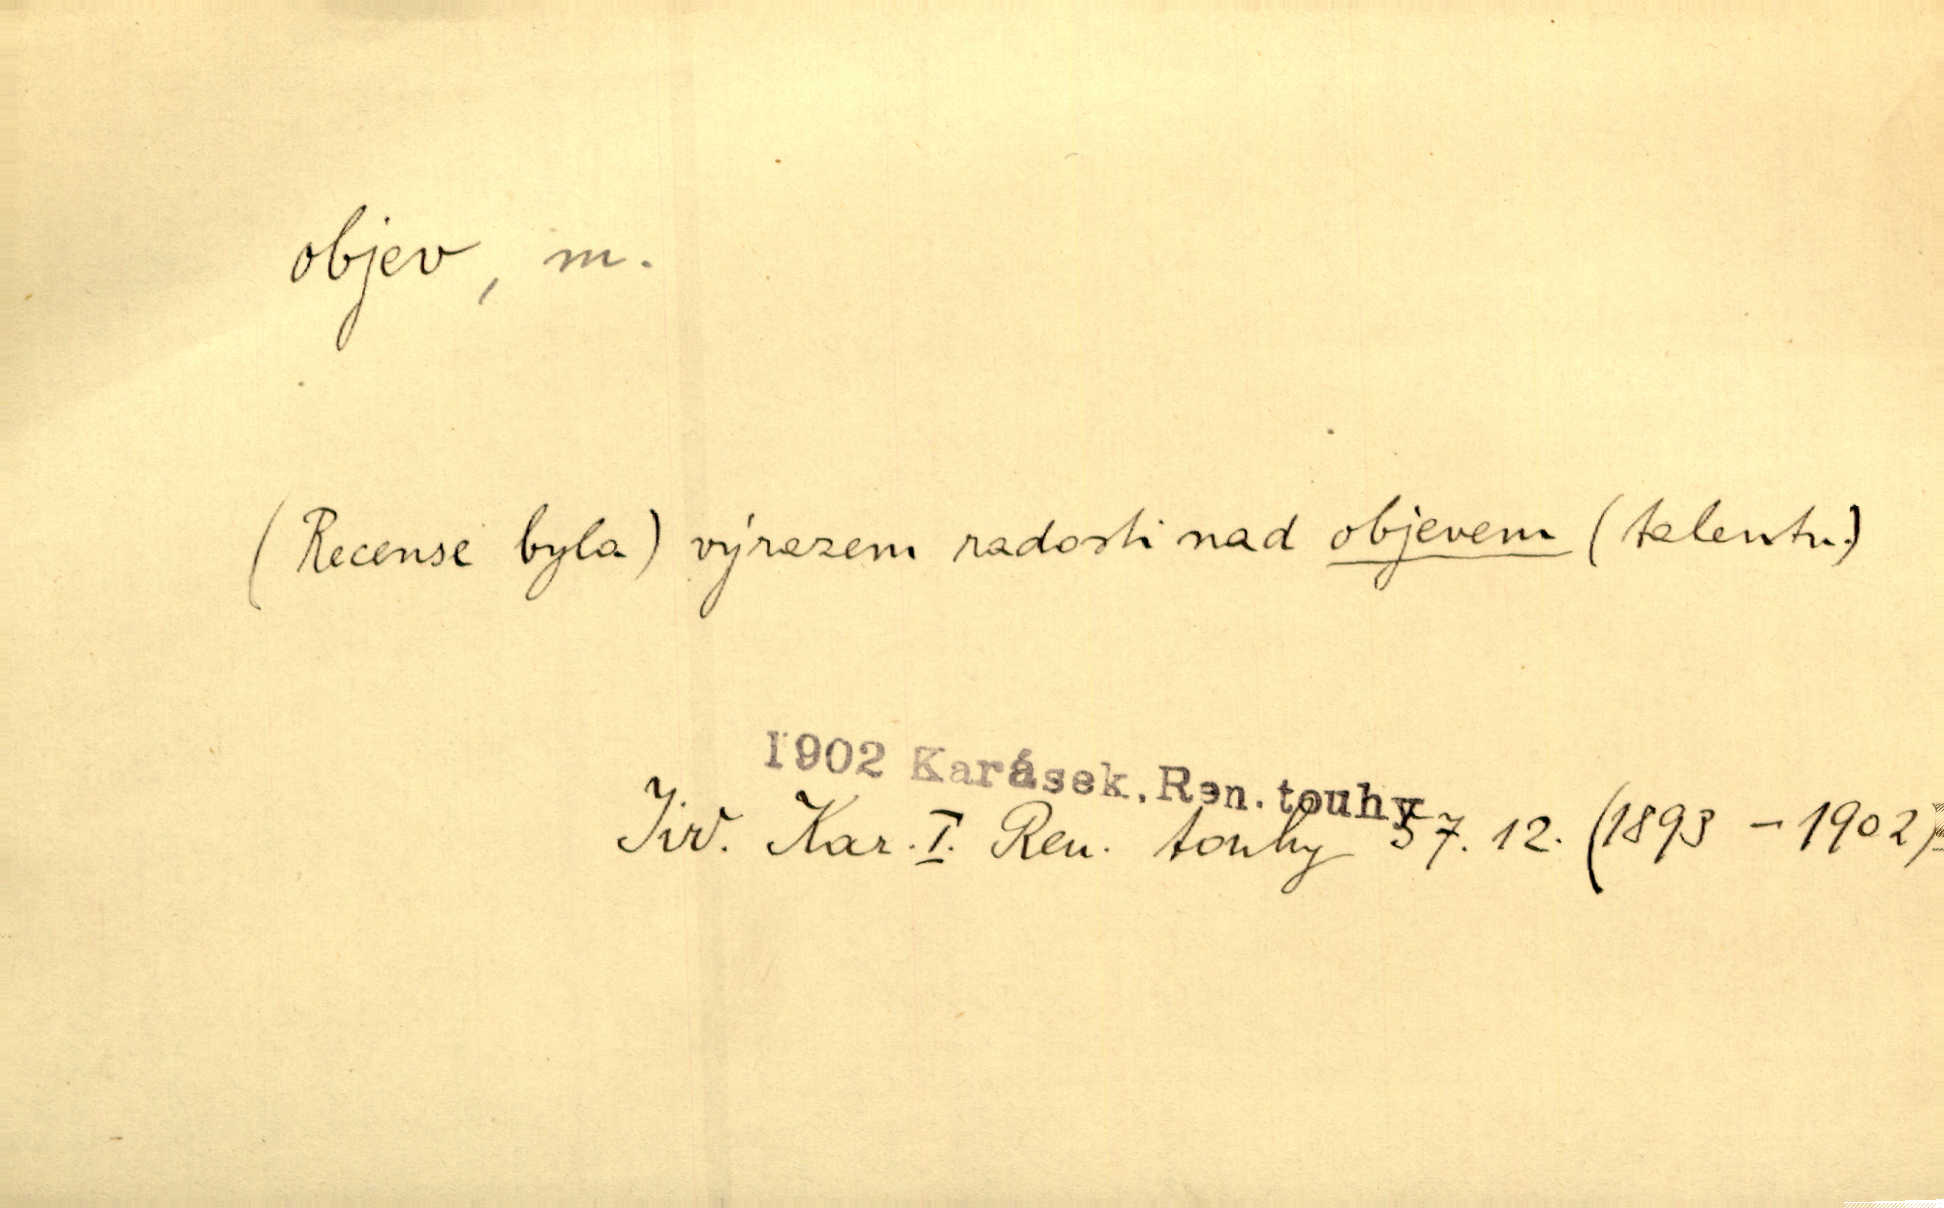 objev, m.
(Recense byla) výrazem radosti nad objevem (talentu.)
1902 Karásek. Ren. touhy
Jiř. Kar. I. Ren. touhy 57. 12. (1893 – 1902)